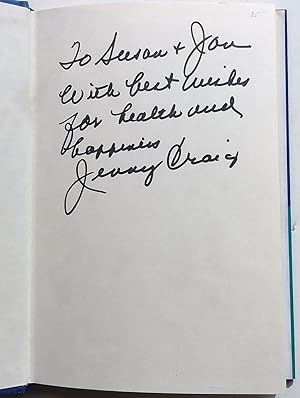 To Susan + Jon
With best wishes
for health and
happiness
Jenny Craig